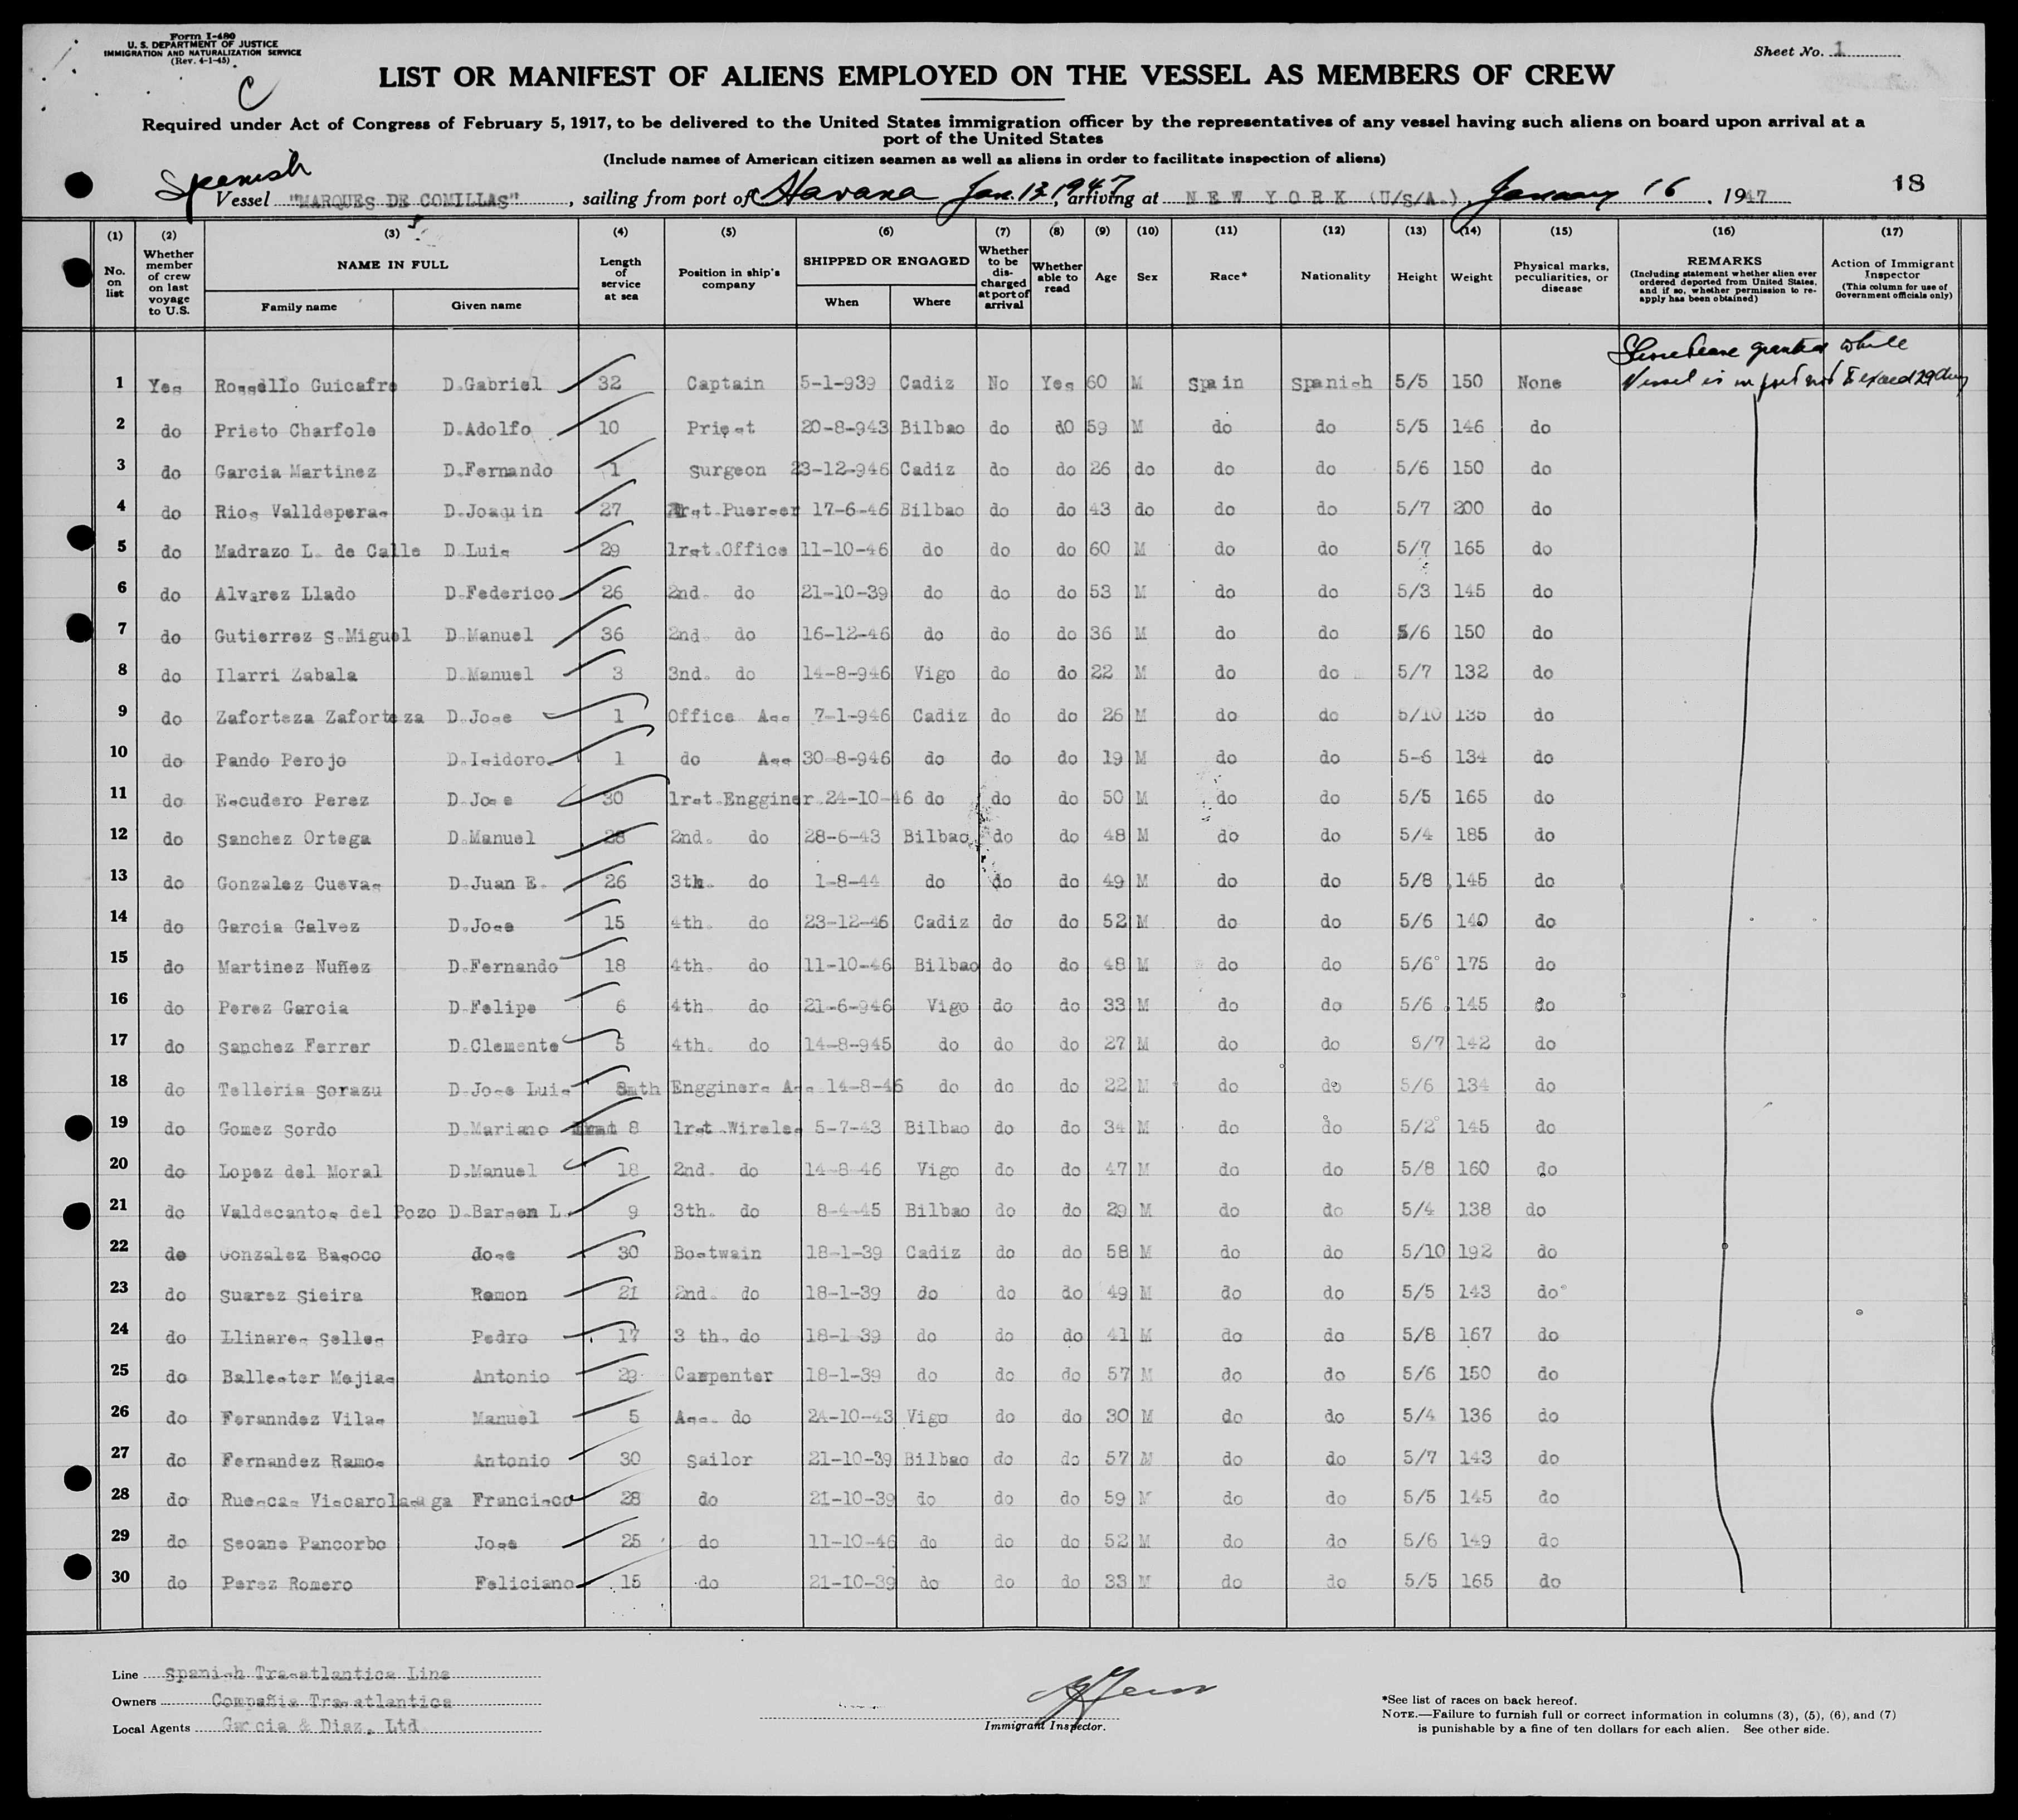 Form I-480
U. S. DEPARTMENT OF JUSTICE
IMMIGRATION AND NATURALIZATION SERVICE
(Rev. 4-1-45)
C
Sheet No. 1
LIST OR MANIFEST OF ALIENS EMPLOYED ON THE VESSEL AS MEMBERS OF CREW
Required under Act of Congress of February 5, 1917, to be delivered to the United States immigration officer by the representatives of any vessel having such aliens on board upon arrival at a
port of the United States
(Include names of American citizen seamen as well as aliens in order to facilitate inspection of aliens)
Spanish
18
Vessel "MARQUES DE COMILLAS", sailing from port of Havana Jan. 13 1947, arriving at NEW YORK (U/S/A.), January 16, 1947
(1) (2) (3) (4) (5) (6) (7) (8) (9) (10) (11) (12) (13) (14) (15) (16) (17)
No. on list
Whether member of crew on last voyage to U.S.
NAME IN FULL
Family name Given name
Length of service at sea
Position in ship's company
SHIPPED OR ENGAGED
When Where
Whether to be discharged at port of arrival
Whether able to read
Age
Sex
Race*
Nationality
Height
Weight
Physical marks, peculiarities, or disease
REMARKS
(Including statement whether alien ever ordered deported from United States, and if so, whether permission to reapply has been obtained)
Action of Immigrant Inspector
(This column for use of Government officials only)
Shore leave granted while
Vessel is in port not to exceed 29 days
1 Yes Rossello Guicafre D.Gabriel 32 Captain 5-1-939 Cadiz No Yes 60 M Spain Spanish 5/5 150 None
2 do Prieto Charfole D.Adolfo 10 Priest 20-8-943 Bilbao do do 59 M do do 5/5 146 do
3 do Garcia Martinez D.Fernando 1 Surgeon 23-12-946 Cadiz do do 26 do do do 5/6 150 do
4 do Rios Valldeperas D.Joaquin 27 1rst.Puerser 17-6-46 Bilbao do do 43 do do do 5/7 200 do
5 do Madrazo L. de Calle D.Luis 29 1rst.Office 11-10-46 do do do 60 M do do 5/7 165 do
6 do Alvarez Llado D.Federico 26 2nd. do 21-10-39 do do do 53 M do do 5/3 145 do
7 do Gutierrez S.Miguel D.Manuel 36 2nd. do 16-12-46 do do do 36 M do do 5/6 150 do
8 do Ilarri Zabala D.Manuel 3 3nd. do 14-8-946 Vigo do do 22 M do do 5/7 132 do
9 do Zaforteza Zaforteza D.Jose 1 Office Ass 7-1-946 Cadiz do do 26 M do do 5/10 135 do
10 do Pando Perojo D.Isidoro 1 do Ass 30-8-946 do do do 19 M do do 5-6 134 do
11 do Escudero Perez D.Jose 30 1rst.Engginer 24-10-46 do do do 50 M do do 5/5 165 do
12 do Sanchez Ortega D.Manuel 28 2nd. do 28-6-43 Bilbao do do 48 M do do 5/4 185 do
13 do Gonzalez Cuevas D.Juan E. 26 3th. do 1-8-44 do do do 49 M do do 5/8 145 do
14 do Garcia Galvez D.Jose 15 4th. do 23-12-46 Cadiz do do 52 M do do 5/6 140 do
15 do Martinez Nuñez D.Fernando 18 4th. do 11-10-46 Bilbao do do 48 M do do 5/6 175 do
16 do Perez Garcia D.Felipe 6 4th. do 21-6-946 Vigo do do 33 M do do 5/6 145 do
17 do Sanchez Ferrer D.Clemente 5 4th. do 14-8-945 do do do 27 M do do 5/7 142 do
18 do Telleria Sorazu D.Jose Luis 8mth Engginers Ass 14-8-46 do do do 22 M do do 5/6 134 do
19 do Gomez Sordo D.Mariano 8 1rst.Wireles 5-7-43 Bilbao do do 34 M do do 5/2 145 do
20 do Lopez del Moral D.Manuel 18 2nd. do 14-8-46 Vigo do do 47 M do do 5/8 160 do
21 do Valdecantos del Pozo D.Barsen L. 9 3th. do 8-4-45 Bilbao do do 29 M do do 5/4 138 do
22 do Gonzalez Basoco Jose 30 Bostwain 18-1-39 Cadiz do do 58 M do do 5/10 192 do
23 do Suarez Sieira Ramon 21 2nd. do 18-1-39 do do do 49 M do do 5/5 143 do
24 do Llinares Selles Pedro 17 3 th. do 18-1-39 do do do 41 M do do 5/8 167 do
25 do Ballester Mejias Antonio 29 Carpenter 18-1-39 do do do 57 M do do 5/6 150 do
26 do Feranndez Vilas Manuel 5 Ass. do 24-10-43 Vigo do do 30 M do do 5/4 136 do
27 do Fernandez Ramos Antonio 30 Sailor 21-10-39 Bilbao do do 57 M do do 5/7 143 do
28 do Ruescas Viscarolasaga Francisco 28 do 21-10-39 do do do 59 M do do 5/5 145 do
29 do Seoane Pancorbo Jose 25 do 11-10-46 do do do 52 M do do 5/6 149 do
30 do Perez Romero Feliciano 15 do 21-10-39 do do do 33 M do do 5/5 165 do
Line Spanish Trasatlantica Line
Owners Compañia Trasatlantica
Local Agents Garcia & Diaz, Ltd
Immigrant Inspector.
*See list of races on back hereof.
NOTE.—Failure to furnish full or correct information in columns (3), (5), (6), and (7)
is punishable by a fine of ten dollars for each alien. See other side.